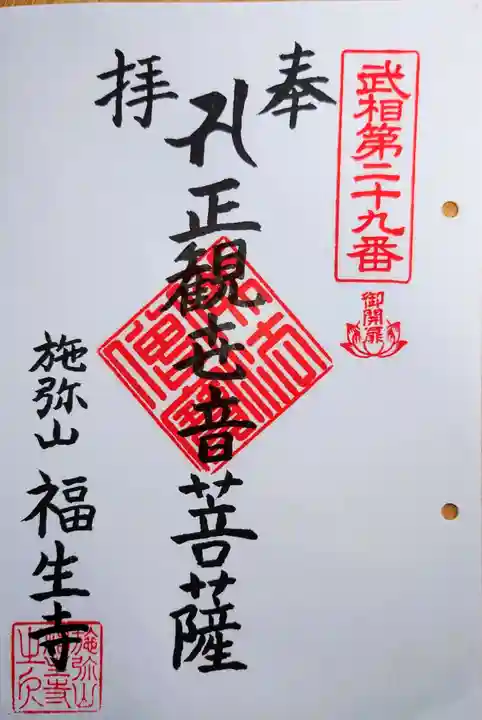 武相第二十九番
御開扉
奉拝
孔正観世音菩薩
施弥山 福生寺
施弥山